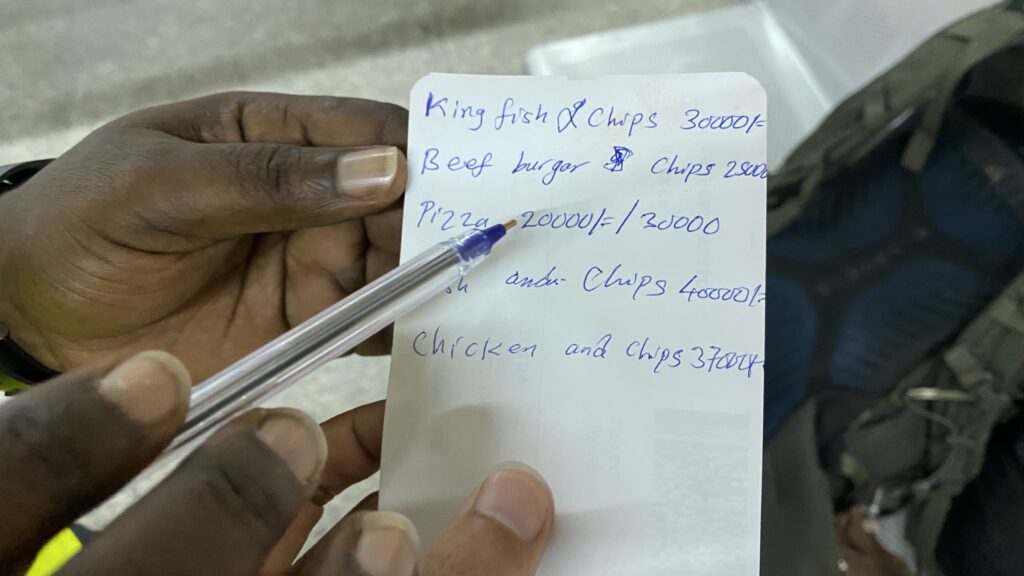 King fish & Chips 30000/=
Beef burgar & Chips 25000
Pizza 20000/= / 30000
and Chips 40000/=
Chicken and Chips 37000/=